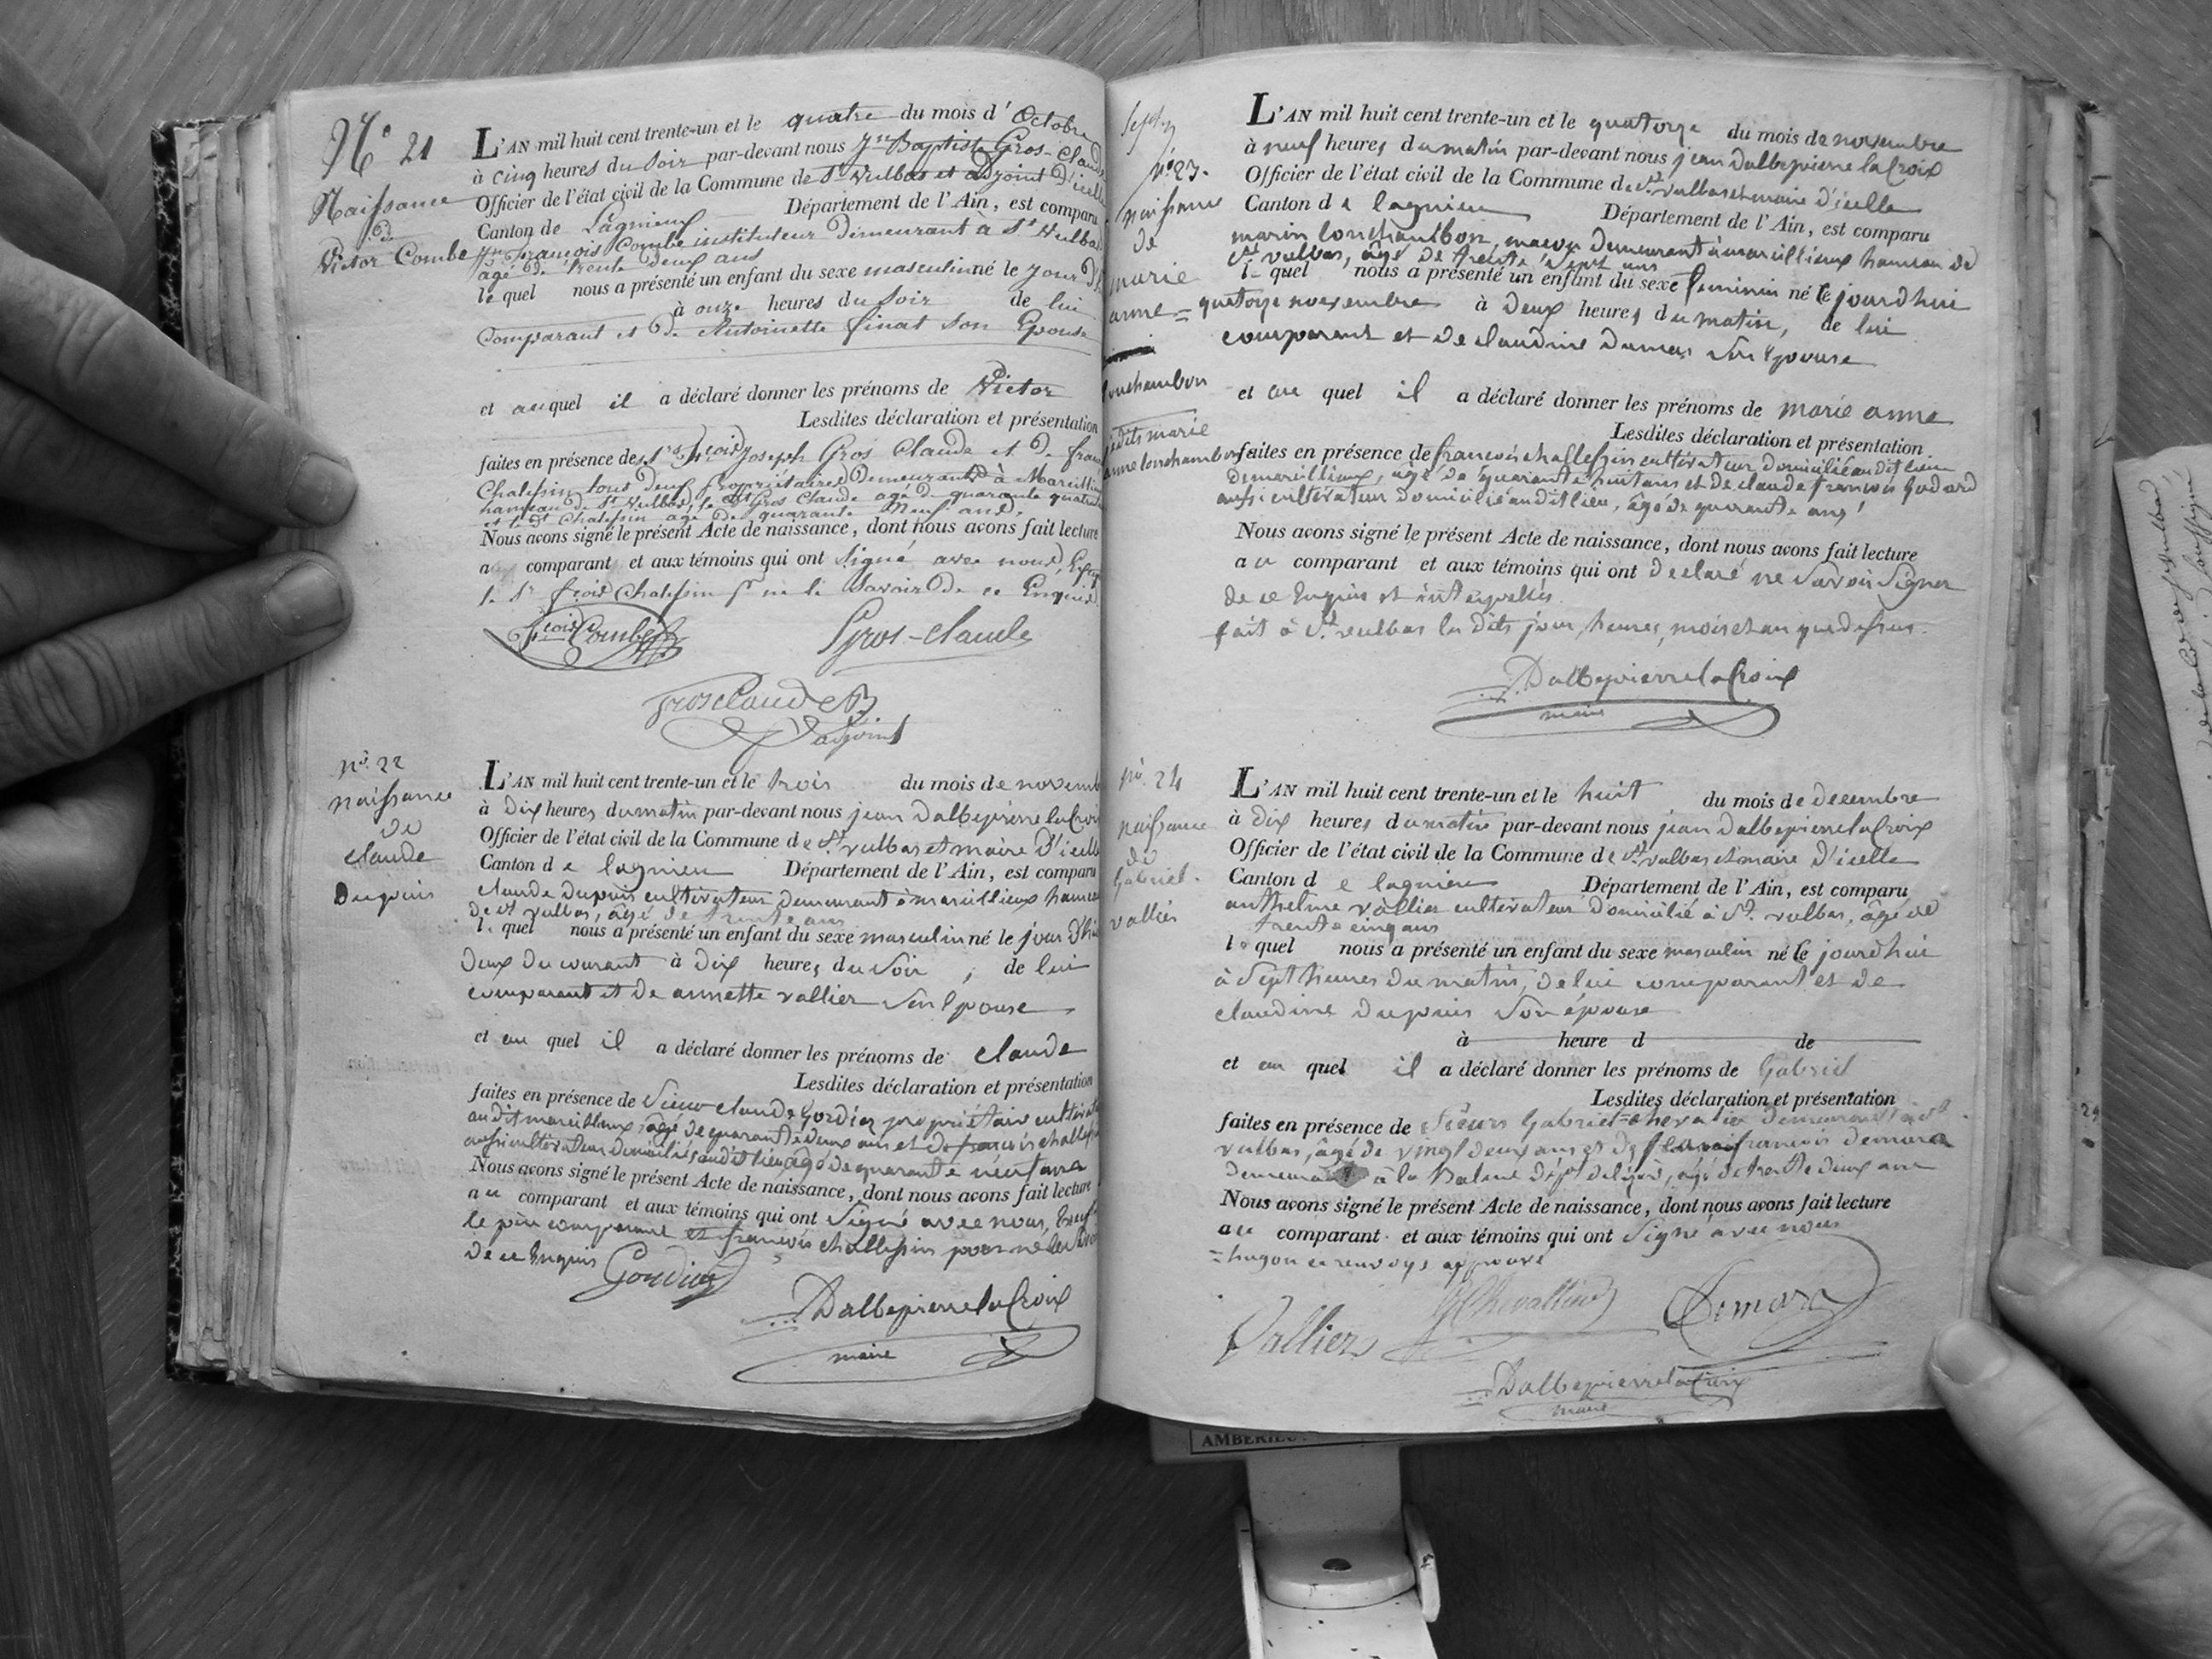 N° 21
Naissance
de
Victor Combe
L'AN mil huit cent trente-un et le quatre du mois d'Octobre
à cinq heures du soir par-devant nous Jn Baptiste Gros-Claude
Officier de l'état civil de la Commune de St Vulbas et adjoint d'icelle
Canton de Lagnieux Département de l'Ain, est comparu
François Combe instituteur demeurant à St Vulbas
âgé de trente deux ans
lequel nous a présenté un enfant du sexe masculin né le jour d'
à onze heures du soir de lui
Comparant et de Antoinette finat son Epouse
et auquel il a déclaré donner les prénoms de Victor
Lesdites déclaration et présentation
faites en présence des Srs fcois Joseph Gros Claude et de
Chalessin tous deux propriétaires demeurants à
hameau de St Vulbas, le St Gros Claude agé de quarante quatre
et le St Chalessin agé de quarante neuf ans.
Nous avons signé le présent Acte de naissance, dont nous avons fait lecture
au comparant et aux témoins qui ont signé avec nous,
le Sr fcois Chalessin pr ne le savoir de ce Enquis
fcois Combe
Gros-claude
Grosclaude
adjoint
no. 22
naissance
de
claude
Dupuis
L'AN mil huit cent trente-un et le trois du mois de novemb
à dix heures du matin par-devant nous jean Dalbepierre laCroix
Officier de l'état civil de la Commune de St. vulbas et maire d'icelle
Canton de lagnieu Département de l'Ain, est comparu
claude Dupuis cultivateur demeurant à marcillieux hameau
de St vulbas, âgé de trente ans
lequel nous a présenté un enfant du sexe masculin né le jour d'hier
deux du courant à dix heures du soir, de lui
comparant et de annette vallier son Epouse
et au quel il a déclaré donner les prénoms de claude
Lesdites déclaration et présentation
faites en présence de Sieur claude Gordiez propriétaire
audit marcillieux, âgé de quarante deux ans et de francois
aussi cultivateur domicilié audit lieu âgé de quarante neuf ans
Nous avons signé le présent Acte de naissance, dont nous avons fait lecture
au comparant et aux témoins qui ont signé avec nous,
le père comparant et francois challessin pour ne le
de ce Enquis
Gordiez
Dalbepierre laCroix
maire
No. 23.
naissance
de
marie
anne
lonchambon
marie
anne lonchambon
L'AN mil huit cent trente-un et le quatorze du mois de novembre
à neuf heures du matin par-devant nous jean Dalbepierre laCroix
Officier de l'état civil de la Commune de St. vulbas et maire d'icelle
Canton de lagnieu Département de l'Ain, est comparu
marin lonchambon, maçon demeurant à marcillieux hameau de
St. vulbas, âgé de trente sept ans
lequel nous a présenté un enfant du sexe feminin né le jourdhui
quatorze novembre à deux heures du matin, de lui
comparant et de claudine dumas son Epouse
et au quel il a déclaré donner les prénoms de marie anne
Lesdites déclaration et présentation
faites en présence de francois challessin cultivateur domicilié audit lieu
de marcillieux, âgé de quarante huit ans et de claude francois Godard
aussi cultivateur domicilié audit lieu, âgé de quarante ans
Nous avons signé le présent Acte de naissance, dont nous avons fait lecture
au comparant et aux témoins qui ont declaré ne savoir signer
de ce Enquis et interpellés.
fait à St. vulbas les dits jour, heures, mois et an que dessus.
Dalbepierre laCroix
maire
no. 24
naissance
de
Gabriel
vallier
L'AN mil huit cent trente-un et le huit du mois de decembre
à dix heures du matin par-devant nous jean Dalbepierre laCroix
Officier de l'état civil de la Commune de St. vulbas et maire d'icelle
Canton de lagnieu Département de l'Ain, est comparu
anthelme vallier cultivateur domicilié à St. vulbas, âgé de
trente cinq ans
lequel nous a présenté un enfant du sexe masculin né le jourdhui
à sept heures du matin, de lui comparant et de
claudine dupuis son épouse
à heure d de
et au quel il a déclaré donner les prénoms de Gabriel
Lesdites déclaration et présentation
faites en présence de Sieurs Gabriel chevalier demeurant à St
vulbas, âgé de vingt deux ans et de francois demora
demeurant à la Balme dépt de lizère, âgé de trente deux ans
Nous avons signé le présent Acte de naissance, dont nous avons fait lecture
au comparant et aux témoins qui ont signé avec nous
renvoys approuvé
Vallier
G Chevallier
Demora
Dalbepierre laCroix
maire
24